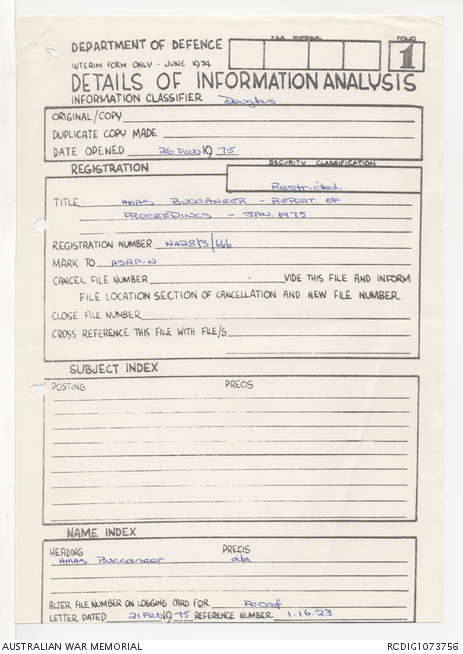 DEPARTMENT OF DEFENCE
FILE NUMBER
FOLIO
1
INTERIM FORM ONLY - JUNE 1974
DETAILS OF INFORMATION ANALYSIS
INFORMATION CLASSIFIER Douglas
ORIGINAL/COPY
DUPLICATE COPY MADE
DATE OPENED 26 Feb 19 75
REGISTRATION
SECURITY CLASSIFICATION
Restricted.
TITLE HMAS BUCCANEER - REPORT OF
PROCEEDINGS - JAN. 1975
REGISTRATION NUMBER NH28/3/666
MARK TO ASRP-N
CANCEL FILE NUMBER VIDE THIS FILE AND INFORM
FILE LOCATION SECTION OF CANCELLATION AND NEW FILE NUMBER.
CLOSE FILE NUMBER
CROSS REFERENCE THIS FILE WITH FILE/S
SUBJECT INDEX
POSTING PRECIS
NAME INDEX
HEADING PRECIS
HMAS Buccaneer a/a
ALTER FILE NUMBER ON LOGGING CARD FOR Focaf
LETTER DATED 21 Feb 19 75 REFERENCE NUMBER 1.16.23
AUSTRALIAN WAR MEMORIAL
RCDIG1073756